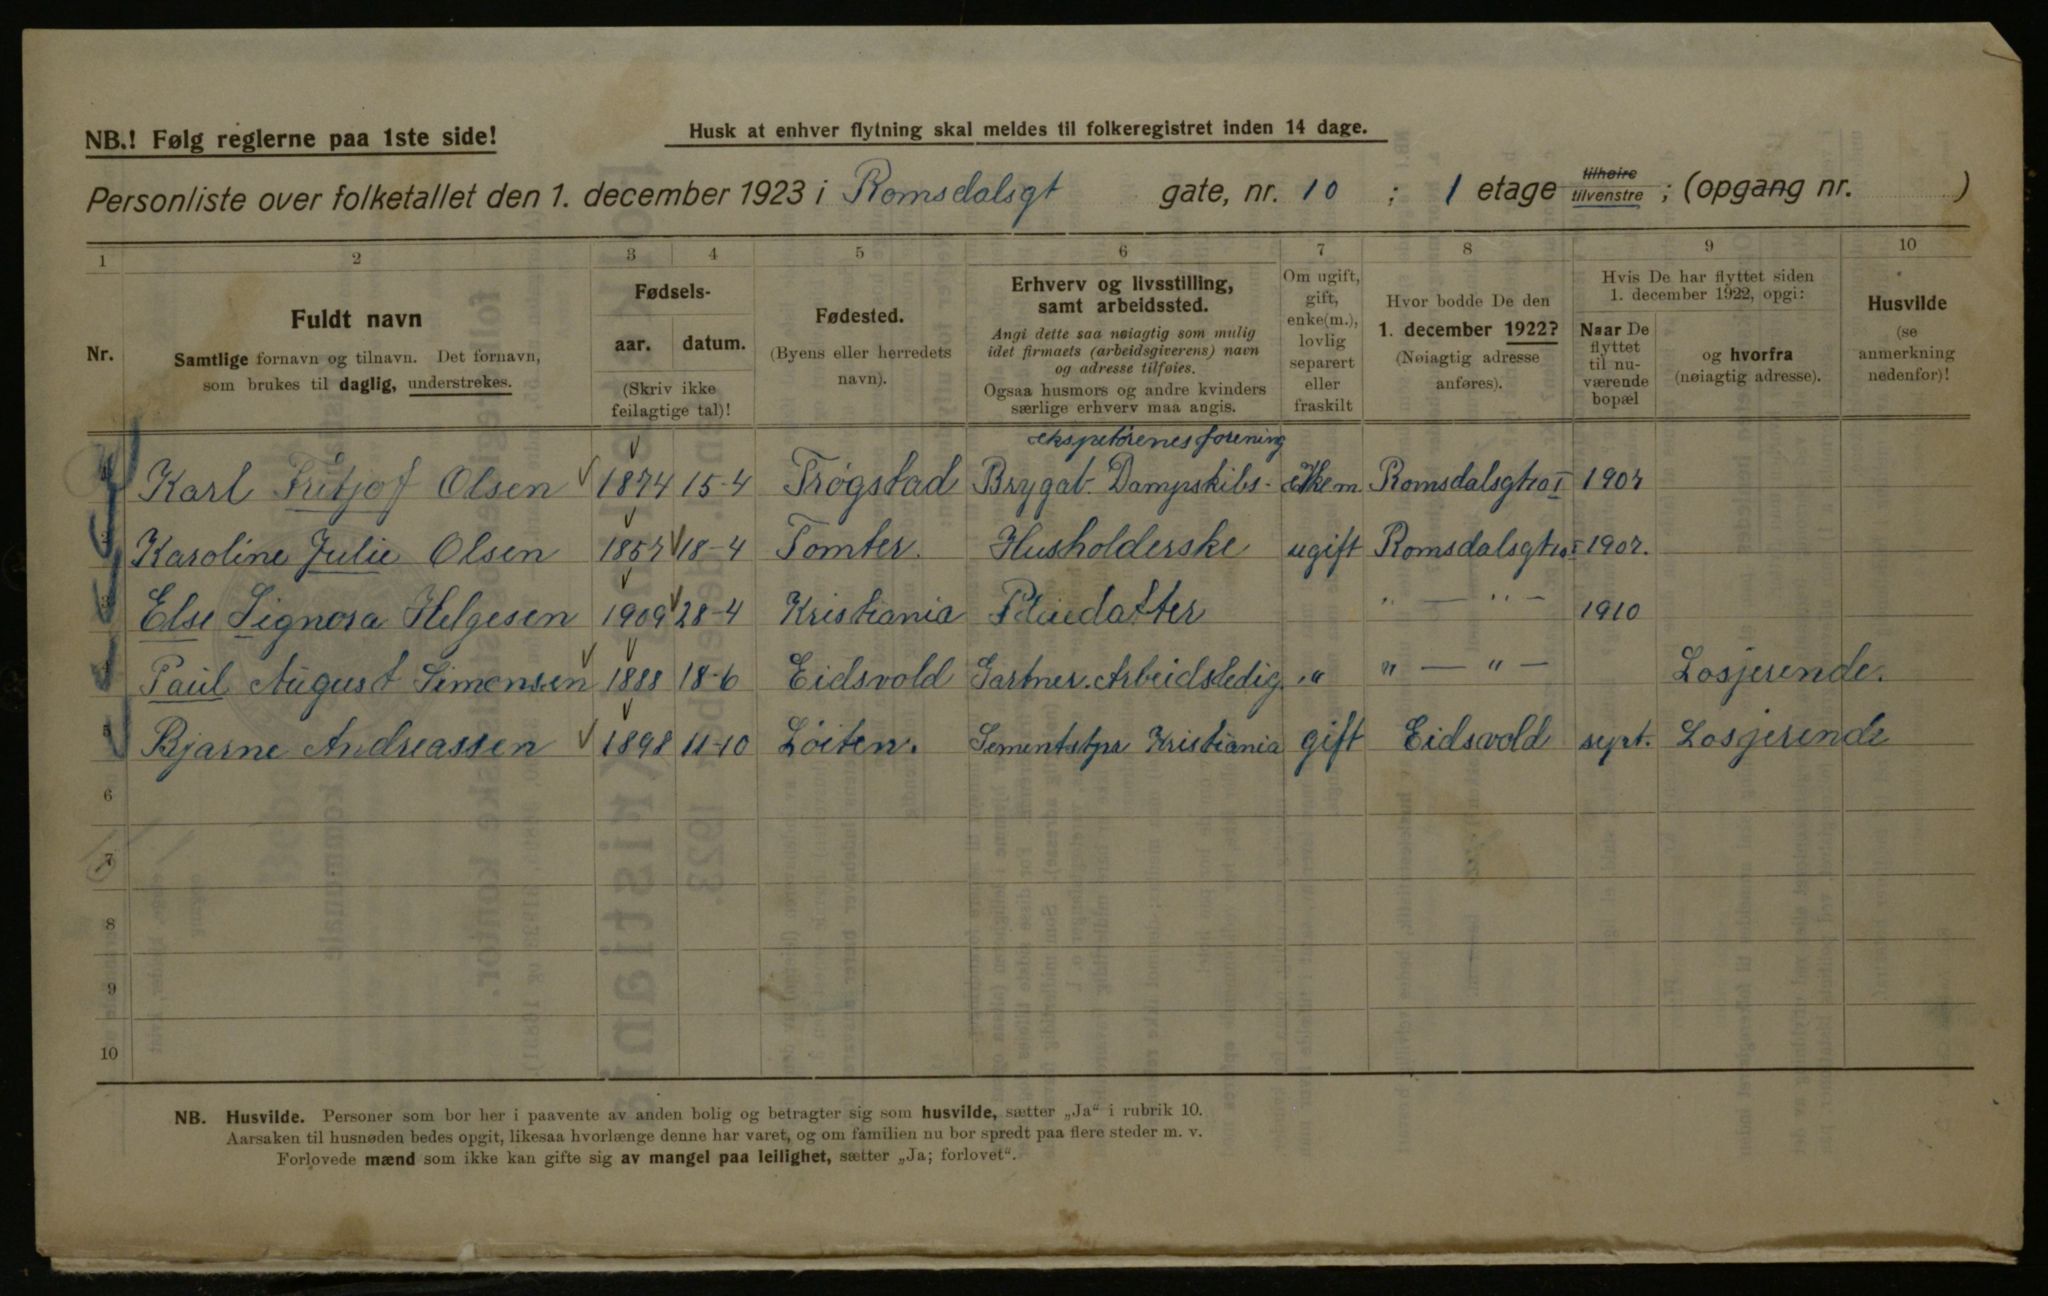 NB.! Følg reglerne paa 1ste side!
Husk at enhver flytning skal meldes til folkeregistret inden 14 dage.
Personliste over folketallet den 1. december 1923 i Romsdalsgt gate, nr. 10 ; 1 etage tilhøire tilvenstre ; (opgang nr. )
1 2 3 4 5 6 7 8 9 10
Nr.
Fuldt navn
Samtlige fornavn og tilnavn. Det fornavn,
som brukes til daglig, understrekes.
Fødsels-
aar. datum.
(Skriv ikke
feilagtige tal)!
Fødested.
(Byens eller herredets
navn).
Erhverv og livsstilling,
samt arbeidssted.
Angi dette saa nøiagtig som mulig
idet firmaets (arbeidsgiverens) navn
og adresse tilføies.
Ogsaa husmors og andre kvinders
særlige erhverv maa angis.
Om ugift,
gift,
enke(m.),
lovlig
separert
eller
fraskilt
Hvor bodde De den
1. december 1922?
(Nøiagtig adresse
anføres).
Hvis De har flyttet siden
1. december 1922, opgi:
Naar De
flyttet
til nu-
værende
bopæl
og hvorfra
(nøiagtig adresse).
Husvilde
(se
anmerkning
nedenfor)!
Karl Fritjof Olsen 1874 15-4 Trøgstad Brygab. Dampskibs- ekspeitørenes forening Ekem. Romsdalsgt 10 I 1907
Karoline Julie Olsen 1857 18-4 Tomter. Husholderske ugift Romsdalsgt 10 I 1907.
Else Signora Helgesen 1909 28-4 Kristiania Pleiedatter " — " — 1910
Paul August Simensen 1888 18-6 Eidsvold Gartner. Arbeidsledig. " " — " — Losjerende.
5 Bjarne Andreassen 1898 11-10 Löiten. Sementstpr Kristiania gift Eidsvold sept. Losjerende
6
7
8
9
10
NB. Husvilde. Personer som bor her i paavente av anden bolig og betragter sig som husvilde, sætter „Ja“ i rubrik 10.
Aarsaken til husnøden bedes opgit, likesaa hvorlænge denne har varet, og om familien nu bor spredt paa flere steder m. v.
Forlovede mænd som ikke kan gifte sig av mangel paa leilighet, sætter „Ja; forlovet“.